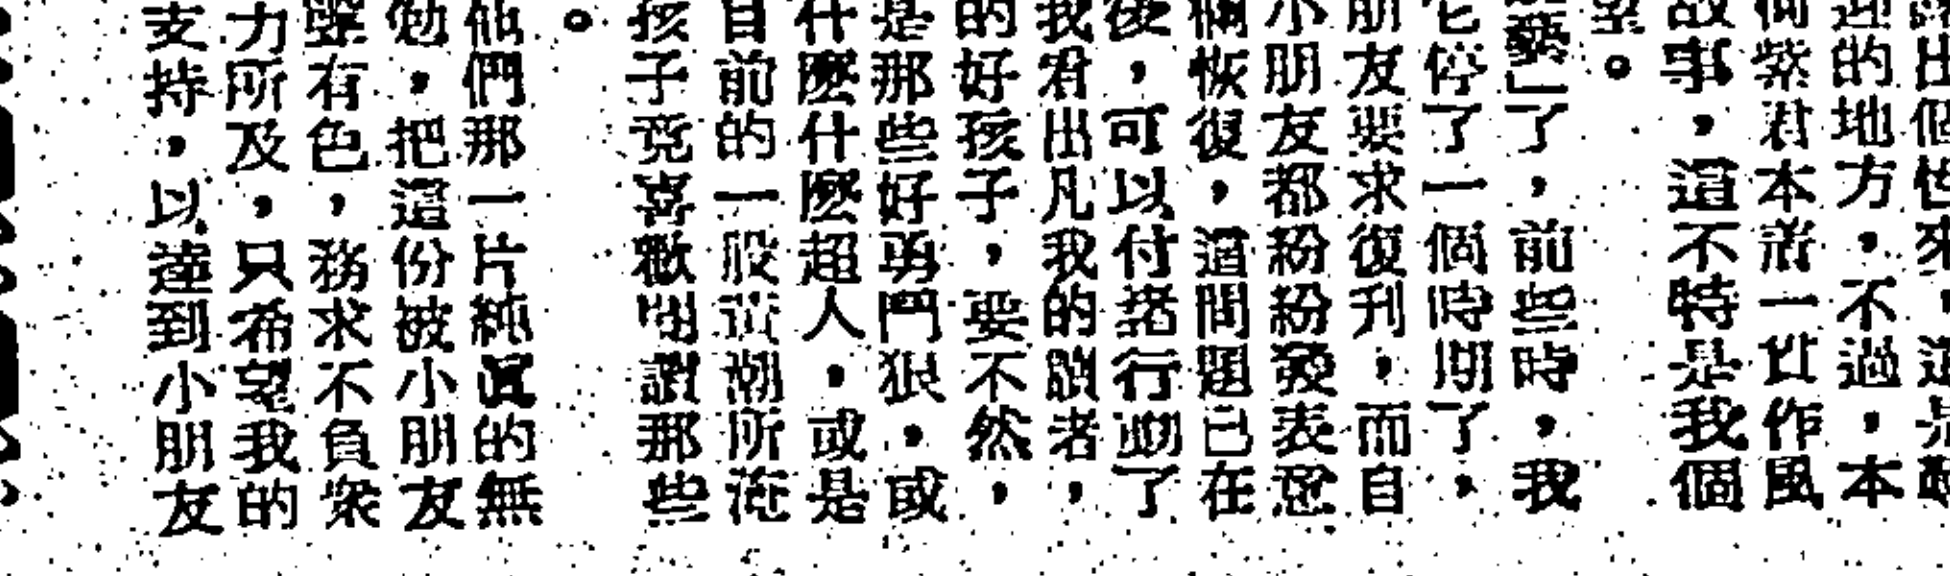 出個世來，這是
迎的地方，不過，本
何紫君本着一貫作風
故事，這不特是我個
望。
藝」了，前些時，我
它停了一個時期了，
朋友要求復刊，而自
小朋友都紛紛發表意
欄恢復，這問題已在
後，可以付諸行動了
我君出凡我的讀者，
的好孩子，要不然，
是那些好勇鬥狠，或
什麼什麼超人，或是
目前的一股黃潮所淹
孩子竟喜歡閱讀那些
。
他們那一片純眞的無
勉，把這份被小朋友
聲有色，務求不負衆
力所及，只希望我的
支持，以達到小朋友